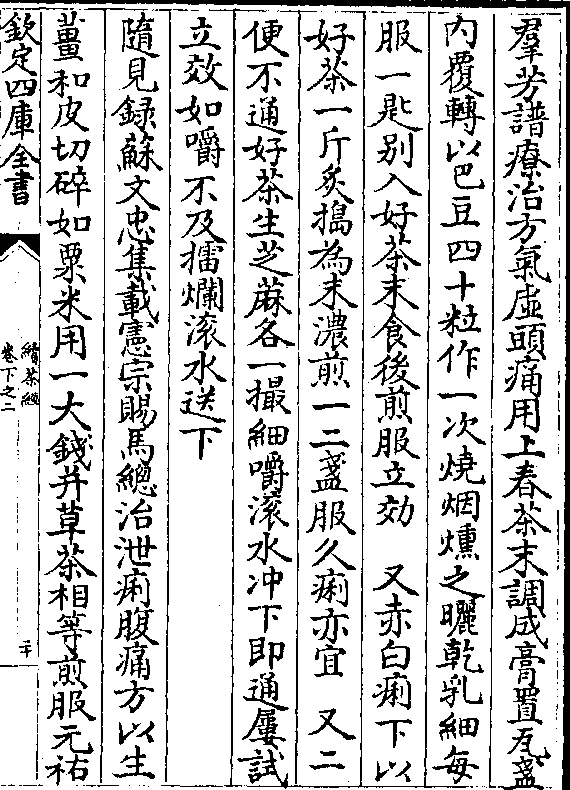 羣芳譜療治方氣虛頭痛用上春茶末調成膏置瓦盞
内覆轉以巴豆四十粒作一次燒烟燻之曬乾乳細每
服一匙别入好茶末食後煎服立効　又赤白痢下以
好茶一斤炙搗為末濃煎一二盞服久痢亦宜　又二
便不通好茶生芝蔴各一撮細嚼滚水冲下即通屢試
立效如嚼不及擂爛滚水送下
隨見録蘇文忠集載憲宗賜馬總治泄痢腹痛方以生
薑和皮切碎如粟米用一大錢并草茶相等煎服元祐
欽定四庫全書
續茶經
卷下之二
二十